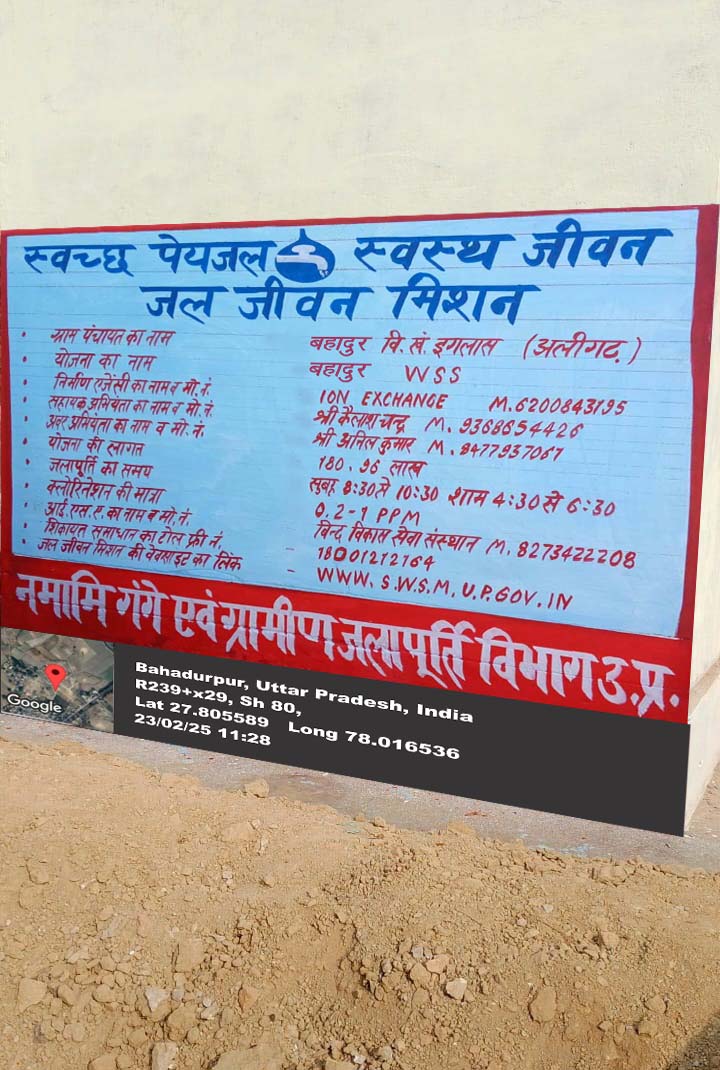 स्वच्छ पेयजल स्वस्थ जीवन
जल जीवन मिशन
• ग्राम पंचायत का नाम बहादुर वि.खं. इगलास (अलीगढ़)
• योजना का नाम बहादुर WSS
• निर्माण एजेंसी का नाम व मो.नं. ION EXCHANGE M.6200843195
• सहायक अभियंता का नाम व मो.नं. श्री कैलाश चन्द्र M. 9368654426
• अवर अभियंता का नाम व मो.नं. श्री अनिल कुमार M. 8477937067
• योजना की लागत 180.96 लाख
• जलापूर्ति का समय सुबह 8:30 से 10:30 शाम 4:30 से 6:30
• क्लोरिनेशन की मात्रा 0.2-1 PPM
• आई.एस.ए. का नाम व मो.नं. विन्द विकास सेवा संस्थान M. 8273422208
• शिकायत समाधान का टोल फ्री नं. - 18001212164
• जल जीवन मिशन की वेवसाइट का लिंक - WWW.S.W.S.M.U.P.GOV.IN
नमामि गंगे एवं ग्रामीण जलापूर्ति विभाग उ.प्र.
Google
Bahadurpur, Uttar Pradesh, India
R239+x29, Sh 80,
Lat 27.805589 Long 78.016536
23/02/25 11:28